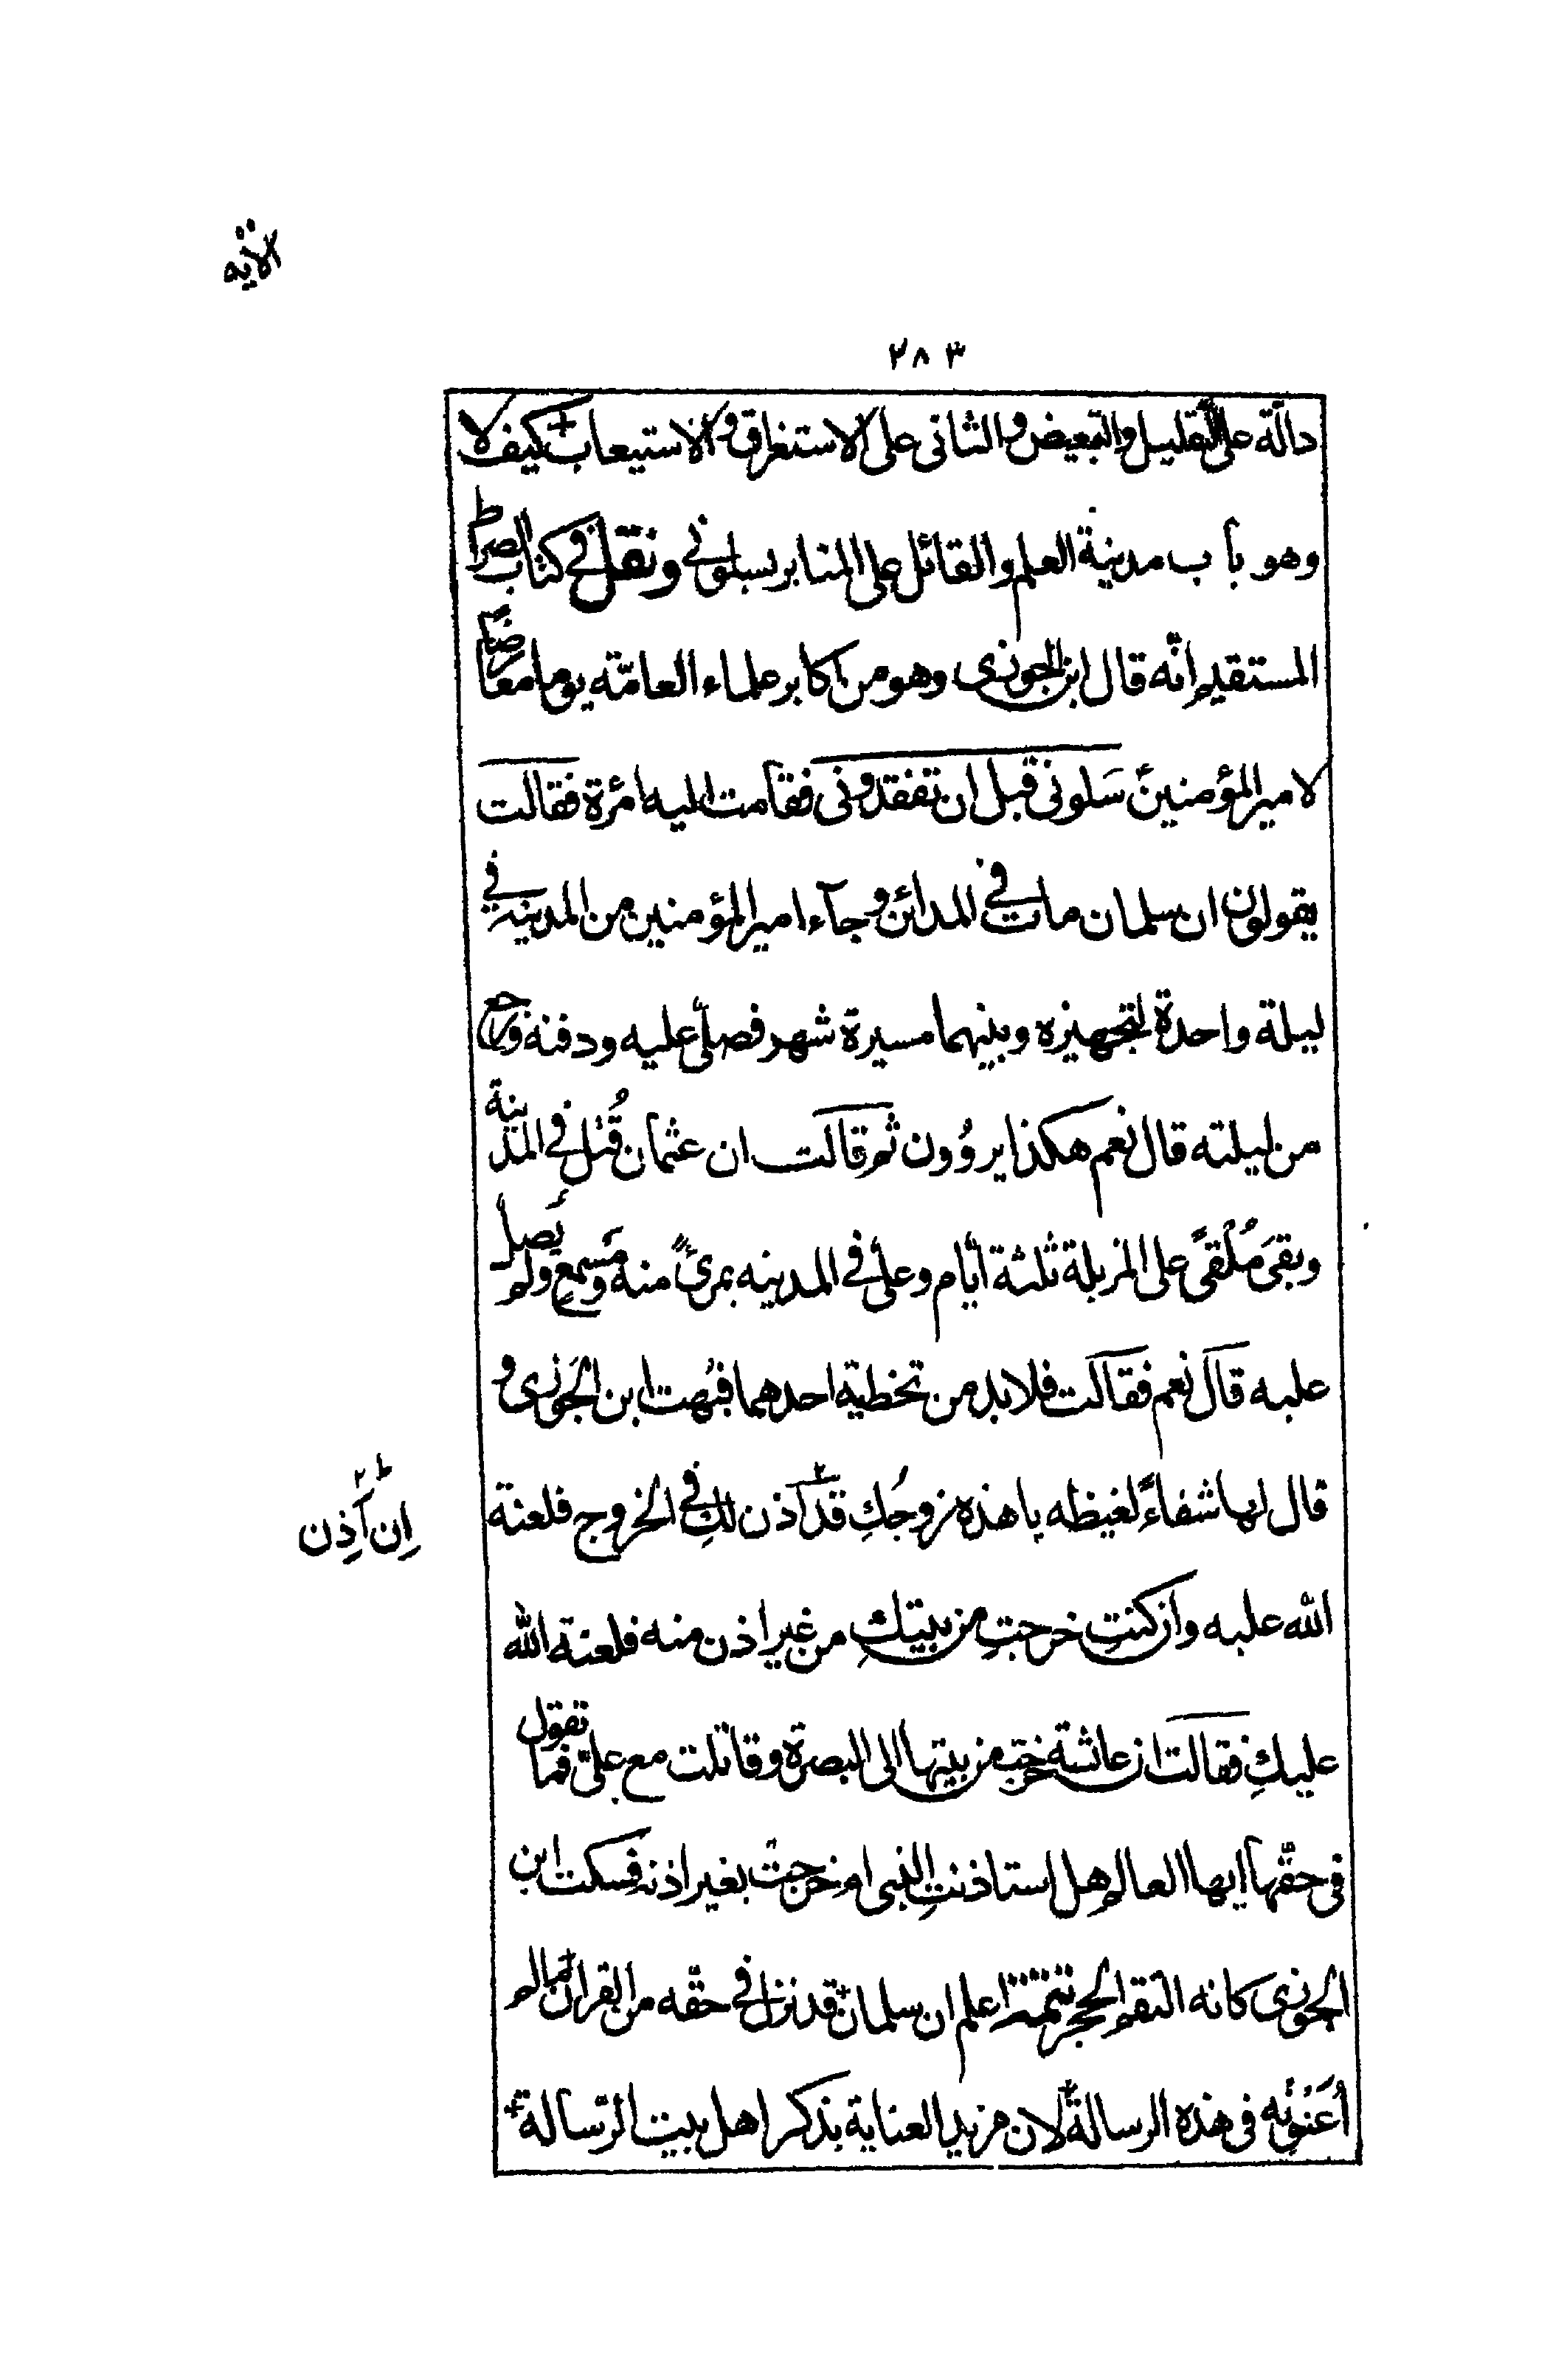 الآیه
٢٨٣
دالّة على التقليل والتبعيض والثانى على الاستغراق والاستيعاب كيف لا
وهو باب مدينة العلم والقائل على المنابر سلونى ونقل فى كتاب الصراط
المستقيم انّه قال ابن الجوزى وهو من اكابر علماء العامّة يوما معارضًا
لامير المؤمنين سَلونى قبل ان تفقدونى فقامت اليه امرئة فقالت
يقولون ان سلمان مات فى المدائن وجآء امير المؤمنين من المدينه فى
ليلة واحدة لتجهيزه وبينهما مسيرة شهر فصلّى عليه ودفنه ورجع
من ليلته قال نعم هكذا يروُون ثم قالت ان عثمان قُتل فى المدينة
وبقىَ مُلْقىً على المزبلة ثلثة ايّام وعلى فى المدينه بمرىً منه ومَسمعٍ ولم يُصلّ
عليه قال نعم فقالت فلابد من تخطية احدهما فبُهت ابن الجَوزى و
قال لها شفاءً لغيظه ياهذه زوجُكِ قد آذن لكِ فى الخروج فلعنة
اِن آذِن
الله عليه وان كنتِ خرجتِ من بيتكِ من غير اذن منه فلعنة الله
عليكِ فقالت ان عائشة خرجت من بيتها الى البصرة وقاتلت مع علىّ فما تقول
فى حقّها ايها العالم هل استاذنت النبى ام خرجت بغير اذنه فسكت ابن
الجوزى كانه التقم الحجر تتمّة اعلم ان سلمان قد نزل فى حقّه من القران مالم
اُعَنْوِنه فى هذه الرسالة لان مزيد العناية بذكر اهل بيت الرّسالة